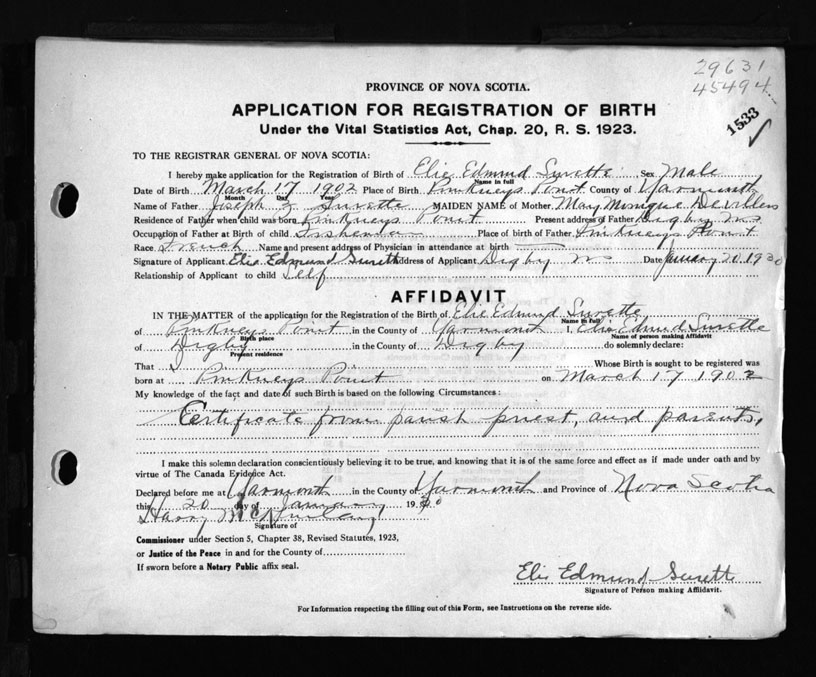 29631
45494
1533
PROVINCE OF NOVA SCOTIA.
APPLICATION FOR REGISTRATION OF BIRTH
Under the Vital Statistics Act, Chap. 20, R. S. 1923.
TO THE REGISTRAR GENERAL OF NOVA SCOTIA:
I hereby make application for the Registration of Birth of Elie Edmund Surette Sex Male
Name in full
Date of Birth March 17 1902 Place of Birth Pinkneys Point County of Yarmouth
Month Day Year
Name of Father Joseph Z Surette MAIDEN NAME of Mother Mary Monique Devillers
Residence of Father when child was born Pinkneys Point Present address of Father Digby N.S.
Occupation of Father at Birth of child Fisherman Place of birth of Father Pinkneys Point
Race French Name and present address of Physician in attendance at birth
Signature of Applicant Elie Edmund Surette Address of Applicant Digby N.S. Date January 20 1930
Relationship of Applicant to child Self
AFFIDAVIT
IN THE MATTER of the application for the Registration of the Birth of Elie Edmund Surette
Name in full
of Pinkneys Point in the County of Yarmouth I, Elie Edmund Surette
Birth place Name of person making Affidavit
of Digby in the County of Digby do solemnly declare:
Present residence
That I Whose Birth is sought to be registered was
born at Pinkneys Point on March 17 1902
My knowledge of the fact and date of such Birth is based on the following Circumstances:
Certificate from parish priest, and parents.
I make this solemn declaration conscientiously believing it to be true, and knowing that it is of the same force and effect as if made under oath and by
virtue of The Canada Evidence Act.
Declared before me at Yarmouth in the County of Yarmouth and Province of Nova Scotia
this 20 day of January 1930
Harry
Signature of
Commissioner under Section 5, Chapter 38, Revised Statutes, 1923,
or Justice of the Peace in and for the County of
If sworn before a Notary Public affix seal.
Elie Edmund Surette
Signature of Person making Affidavit.
For Information respecting the filling out of this Form, see Instructions on the reverse side.